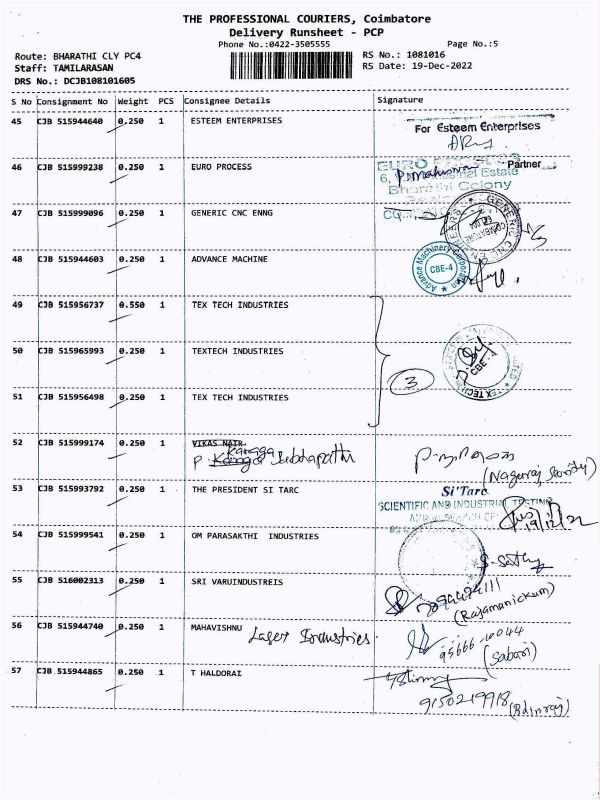 THE PROFESSIONAL COURIERS, Coimbatore
Delivery Runsheet - PCP
Phone No.:0422-3505555 Page No.:5
Route: BHARATHI CLY PC4 RS No.: 1081016
Staff: TAMILARASAN RS Date: 19-Dec-2022
DRS No.: DCJB108101605
S No Consignment No Weight PCS Consignee Details Signature
45 CJB 515944640 0.250 1 ESTEEM ENTERPRISES For Esteem Enterprises
Partner
46 CJB 515999238 0.250 1 EURO PROCESS EURO PROCESS
6, Industrial Estate
Bharathi Colony
47 CJB 515999096 0.250 1 GENERIC CNC ENNG GENERIC CNC
48 CJB 515944603 0.250 1 ADVANCE MACHINE Advance Machinery Corporation
CBE-4
49 CJB 515956737 0.550 1 TEX TECH INDUSTRIES
50 CJB 515965993 0.250 1 TEXTECH INDUSTRIES 3 CBE-4
TEX TECH
51 CJB 515956498 0.250 1 TEX TECH INDUSTRIES
52 CJB 515999174 0.250 1 VIKAS NAIR
53 CJB 515993792 0.250 1 THE PRESIDENT SI TARC Si'Tarc
SCIENTIFIC AND INDUSTRIAL TESTING
19/12/22
54 CJB 515999541 0.250 1 OM PARASAKTHI INDUSTRIES
55 CJB 516002313 0.250 1 SRI VARUINDUSTREIS
(Rajamanickum)
56 CJB 515944740 0.250 1 MAHAVISHNU Laser Industries.
95666-10044
(Sabari)
57 CJB 515944865 0.250 1 T HALDORAI
9150219918